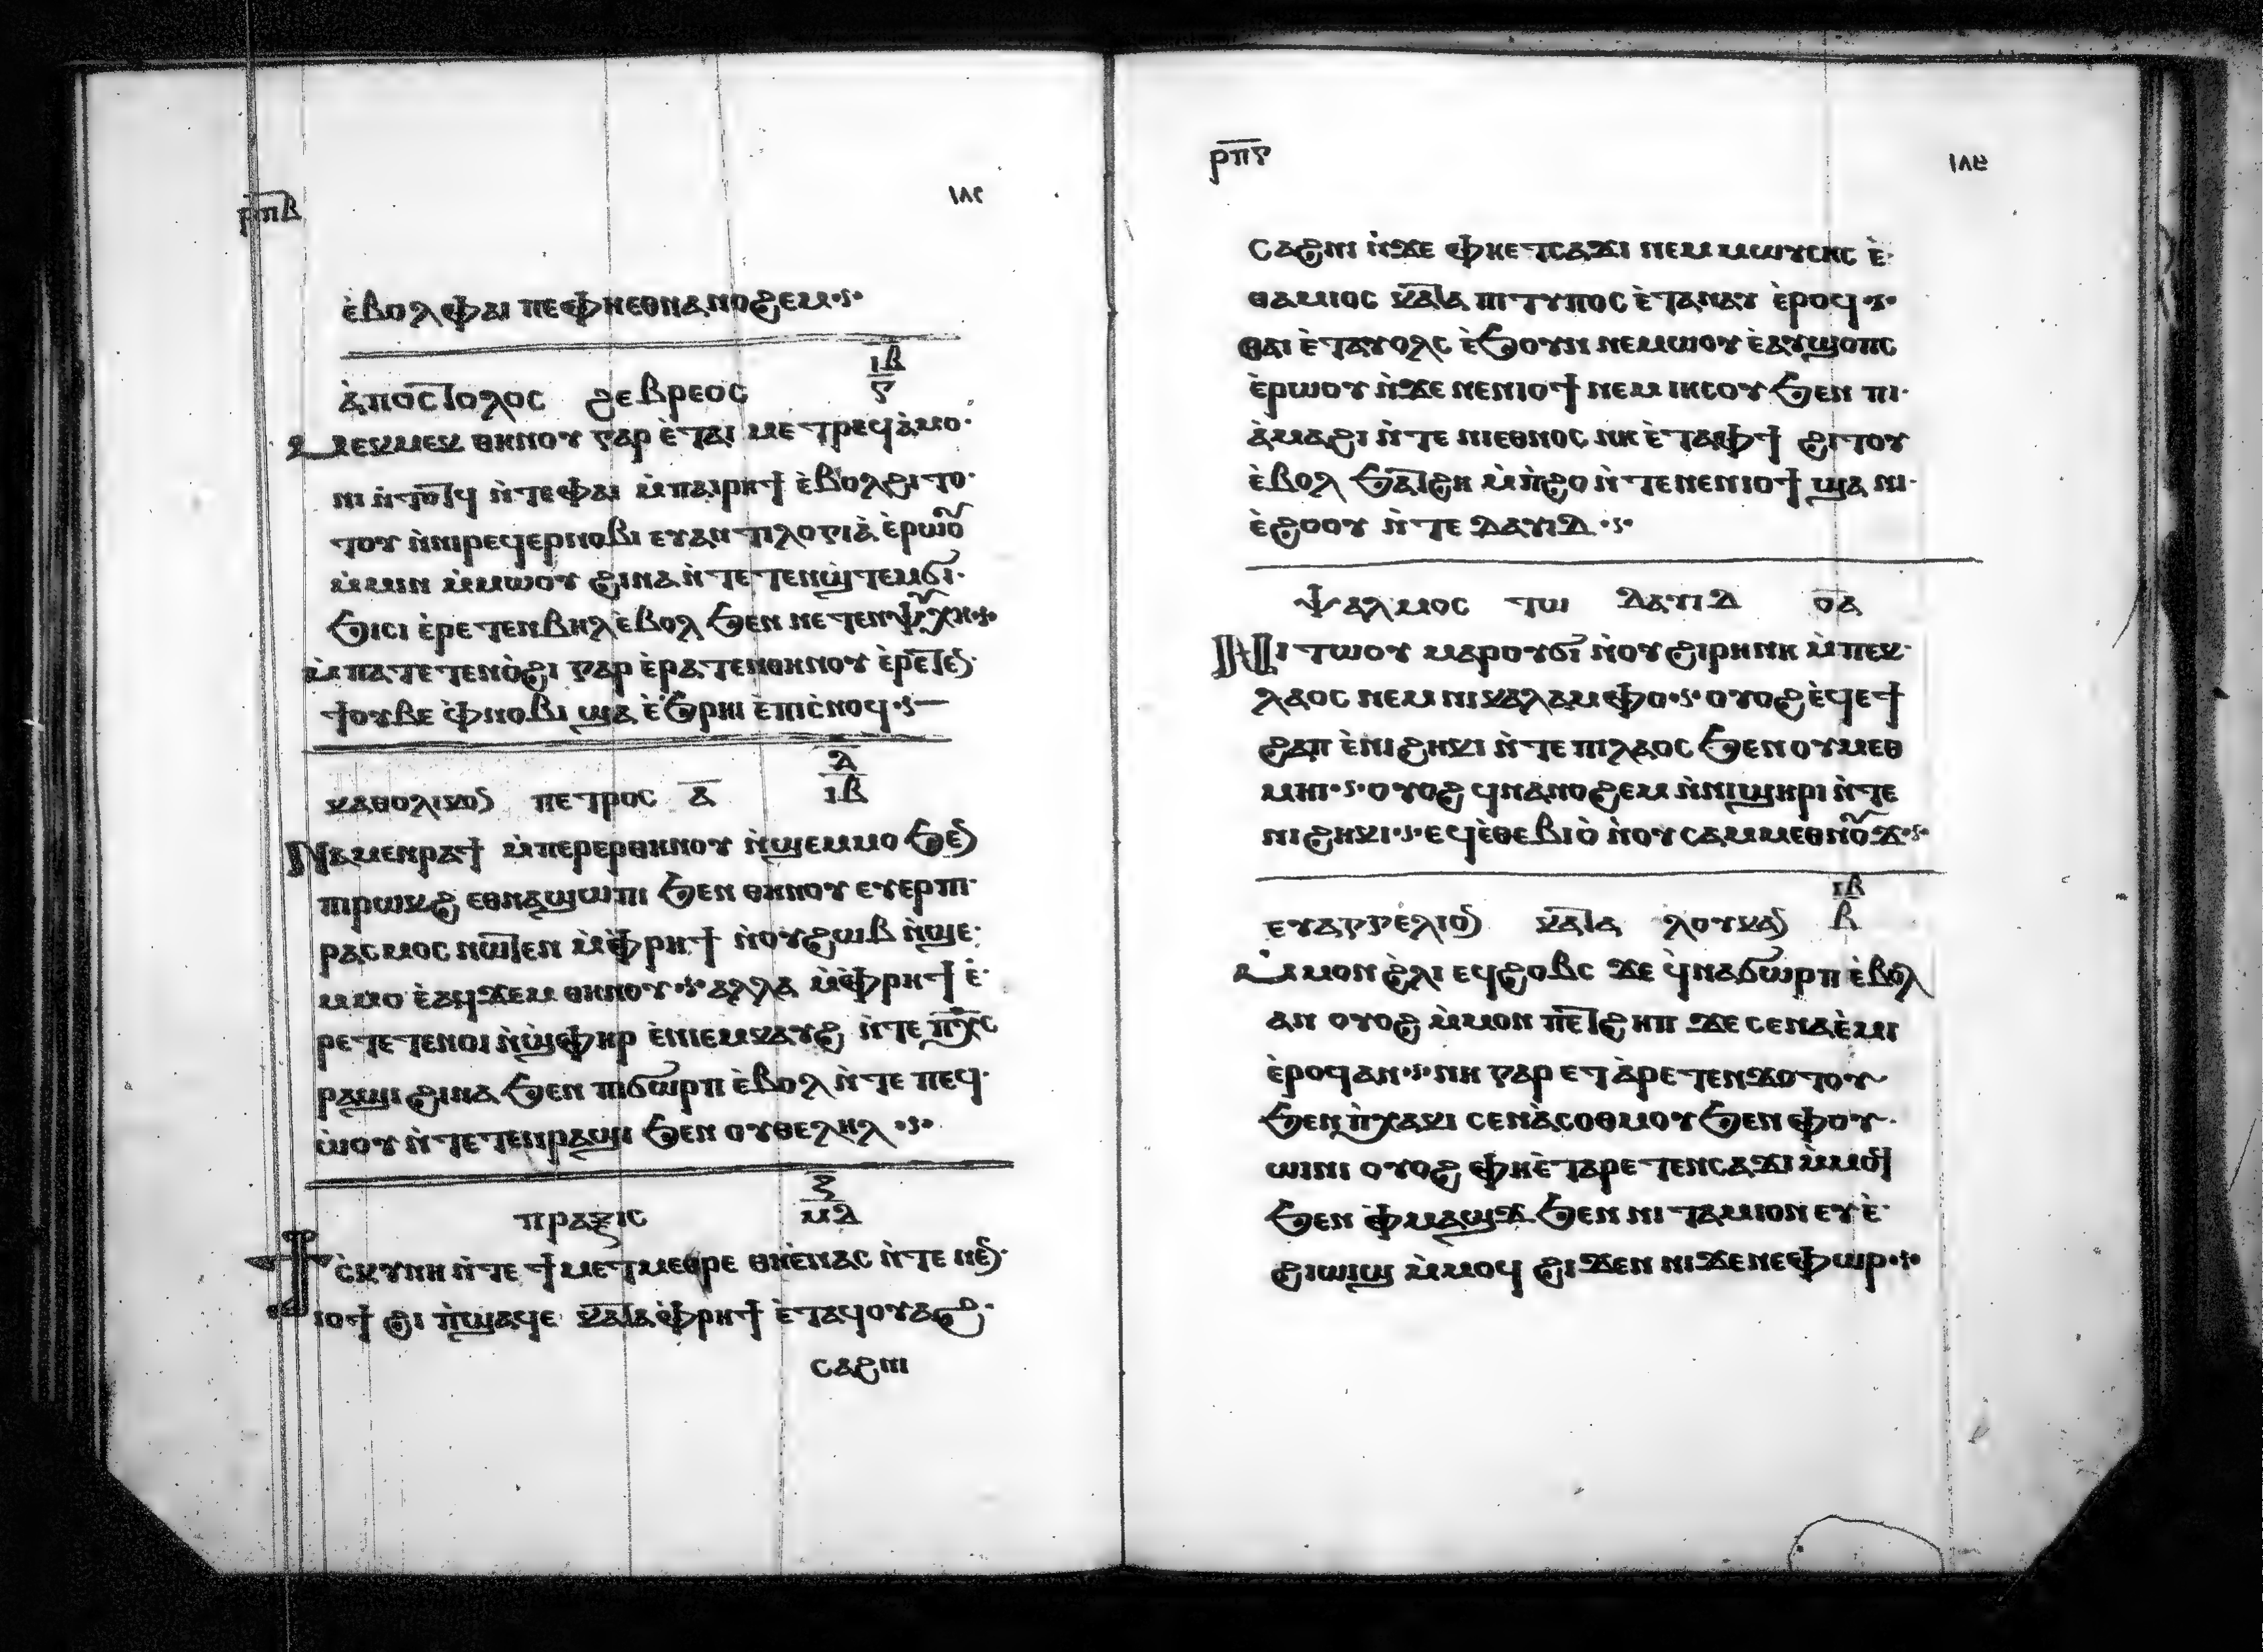 ⲣ̅ⲡ̅ⲃ̅ ١٨٢
ⲉ̀ⲃⲟⲗ ⲫⲁⲓ ⲡⲉ ⲫⲏⲉⲑⲛⲁⲛⲟϩⲉⲙ
ⲓⲃ
ⲁ̀ⲡⲟⲥⲧⲟⲗⲟⲥ ϩⲉⲃⲣⲉⲟⲥ ⲋ
ⲙⲉⲕⲙⲉⲕ ⲑⲏⲛⲟⲩ ⲅⲁⲣ ⲉ̀ⲧⲁⲓ ⲙⲉⲧⲣⲉϥⲁ̀ⲙⲟ
ⲛⲓ ⲛ̀ⲧⲟⲧϥ ⲛ̀ⲧⲉ ⲫⲁⲓ ⲙ̀ⲡⲁⲓⲣⲏϯ ⲉ̀ⲃⲟⲗϩⲓⲧⲟ
ⲧⲟⲩ ⲛ̀ⲛⲓⲣⲉϥⲉⲣⲛⲟⲃⲓ ⲉⲩⲁⲛⲧⲓⲗⲟⲅⲓⲁ̀ ⲉ̀ⲣⲱⲟⲩ
ⲙ̀ⲙⲓⲛ ⲙ̀ⲙⲱⲟⲩ ϩⲓⲛⲁ ⲛ̀ⲧⲉⲧⲉⲛϣ̀ⲧⲉⲙϭⲓ
ϧⲓⲥⲓ ⲉ̀ⲣⲉⲧⲉⲛⲃⲏⲗ ⲉ̀ⲃⲟⲗ ϧⲉⲛ ⲛⲉⲧⲉⲛⲯⲩⲭⲏ
ⲙ̀ⲡⲁⲧⲉⲧⲉⲛⲟ̀ϩⲓ ⲅⲁⲣ ⲉ̀ⲣⲁⲧⲉⲛⲑⲏⲛⲟⲩ ⲉ̀ⲣⲉⲧⲉⲛ
ϯⲟⲩⲃⲉ ⲫ̀ⲛⲟⲃⲓ ϣⲁ ⲉ̀ϧ̀ⲣⲏⲓ ⲉ̀ⲡⲓⲥ̀ⲛⲟϥ
ⲇ
ⲕⲁⲑⲟⲗⲓⲕⲟⲛ ⲡⲉⲧⲣⲟⲥ ⲁ̅ ⲓⲃ
ⲛⲁⲙⲉⲛⲣⲁϯ ⲙ̀ⲡⲉⲣⲉⲣⲑⲏⲛⲟⲩ ⲛ̀ϣⲉⲙⲙⲟ ϧⲉⲛ
ⲡⲓⲣⲱⲕϩ ⲉⲑⲛⲁϣⲱⲡⲓ ϧⲉⲛ ⲑⲏⲛⲟⲩ ⲉⲩⲉⲣⲡⲓ
ⲣⲁⲥⲙⲟⲥ ⲛⲱⲧⲉⲛ ⲙ̀ⲫ̀ⲣⲏϯ ⲛ̀ⲟⲩϩⲱⲃ ⲛ̀ϣⲉ
ⲙⲙⲟ ⲉ̀ⲁϥϫⲉⲙ ⲑⲏⲛⲟⲩ ⲁⲗⲗⲁ ⲙ̀ⲫ̀ⲣⲏϯ ⲉ̀
ⲣⲉⲧⲉⲧⲉⲛⲟⲓ ⲛ̀ϣ̀ⲫⲏⲣ ⲉ̀ⲛⲓⲉⲙⲕⲁⲩϩ ⲛ̀ⲧⲉ ⲡ̀ⲭ̅ⲥ
ⲣⲁϣⲓ ϩⲓⲛⲁ ϧⲉⲛ ⲡⲓϭⲱⲣⲡ ⲉ̀ⲃⲟⲗ ⲛ̀ⲧⲉ ⲡⲉϥ
ⲱ̀ⲟⲩ ⲛ̀ⲧⲉⲧⲉⲛⲣⲁϣⲓ ϧⲉⲛ ⲟⲩⲑⲉⲗⲏⲗ
ⲍ
ⲡⲣⲁⲝⲓⲥ ⲙⲇ
ϯⲥ̀ⲕⲩⲛⲏ ⲛ̀ⲧⲉ ϯⲙⲉⲧⲙⲉⲑⲣⲉ ⲑⲏⲉⲛⲁⲥ ⲛ̀ⲧⲉ ⲛⲉⲛ
ⲓⲟϯ ϩⲓ ⲡ̀ϣⲁϥⲉ ⲕⲁⲧⲁ ⲫ̀ⲣⲏϯ ⲉ̀ⲧⲁϥⲟⲩⲁϩ
ⲥⲁϩⲛⲓ
ⲣ̅ⲡ̅ⲅ̅ ١٨٣
ⲥⲁϩⲛⲓ ⲛ̀ϫⲉ ⲫⲏⲉⲧⲥⲁϫⲓ ⲛⲉⲙ ⲙⲱⲩⲥⲏⲥ ⲉ̀
ⲑⲁⲙⲓⲟⲥ ⲕⲁⲧⲁ ⲡⲓⲧⲩⲡⲟⲥ ⲉ̀ⲧⲁⲛⲁⲩ ⲉ̀ⲣⲟϥ
ⲑⲁⲓ ⲉ̀ⲧⲁⲩⲟⲗⲥ ⲉ̀ϧⲟⲩⲛ ⲛⲉⲙⲱⲟⲩ ⲉ̀ⲁⲩϣⲟⲡⲥ
ⲉ̀ⲣⲱⲟⲩ ⲛ̀ϫⲉ ⲛⲉⲛⲓⲟϯ ⲛⲉⲙ ⲓⲏⲥⲟⲩ ϧⲉⲛ ⲡⲓ
ⲁ̀ⲙⲁϩⲓ ⲛ̀ⲧⲉ ⲛⲓⲉⲑⲛⲟⲥ ⲛⲏ ⲉ̀ⲧⲁⲫϯ ϩⲓⲧⲟⲩ
ⲉ̀ⲃⲟⲗ ϧⲁⲧϩⲏ ⲙ̀ⲡ̀ϩⲟ ⲛ̀ⲧⲉ ⲛⲉⲛⲓⲟϯ ϣⲁ ⲛⲓ
ⲉ̀ϩⲟⲟⲩ ⲛ̀ⲧⲉ ⲇⲁⲩⲓⲇ
ⲯⲁⲗⲙⲟⲥ ⲧⲱ ⲇⲁⲩⲓⲇ ⲟ̅ⲁ̅
ⲛⲓⲧⲱⲟⲩ ⲙⲁⲣⲟⲩϭⲓ ⲛ̀ⲟⲩϩⲓⲣⲏⲛⲏ ⲙ̀ⲡⲉⲕ
ⲗⲁⲟⲥ ⲛⲉⲙ ⲛⲓⲕⲁⲗⲁⲙⲫⲟ ⲟⲩⲟϩ ⲉ̀ϥⲉϯ
ϩⲁⲡ ⲉ̀ⲛⲓϩⲏⲕⲓ ⲛ̀ⲧⲉ ⲡⲓⲗⲁⲟⲥ ϧⲉⲛ ⲟⲩⲙⲉⲑ
ⲙⲏⲓ ⲟⲩⲟϩ ϥⲛⲁⲛⲟϩⲉⲙ ⲛ̀ⲛⲓϣⲏⲣⲓ ⲛ̀ⲧⲉ
ⲛⲓϩⲏⲕⲓ ⲉϥⲉ̀ⲑⲉⲃⲓⲟ̀ ⲛ̀ⲟⲩⲥⲁⲙⲙⲉⲑⲛⲟⲩϫ
ⲓⲃ
ⲉⲩⲁⲅⲅⲉⲗⲓⲟⲛ ⲕⲁⲧⲁ ⲗⲟⲩⲕⲁⲛ ⲃ
ⲙ̀ⲙⲟⲛ ϩ̀ⲗⲓ ⲉϥϩⲟⲃⲥ ϫⲉ ϥ̀ⲛⲁϭⲱⲣⲡ ⲉ̀ⲃⲟⲗ
ⲁⲛ ⲟⲩⲟϩ ⲙ̀ⲙⲟⲛ ⲡⲉⲧϩⲏⲡ ϫⲉ ⲥⲉⲛⲁⲉ̀ⲙⲓ
ⲉ̀ⲣⲟϥ ⲁⲛ ⲛⲏ ⲅⲁⲣ ⲉⲧⲁ̀ⲣⲉⲧⲉⲛϫⲟⲧⲟⲩ
ϧⲉⲛ ⲡ̀ⲭⲁⲕⲓ ⲥⲉⲛⲁ̀ⲥⲟⲑⲙⲟⲩ ϧⲉⲛ ⲫⲟⲩ
ⲱⲓⲛⲓ ⲟⲩⲟϩ ⲫⲏⲉ̀ⲧⲁⲣⲉⲧⲉⲛⲥⲁϫⲓ ⲙ̀ⲙⲟϥ
ϧⲉⲛ ⲫ̀ⲙⲁϣϫ ϧⲉⲛ ⲛⲓⲧⲁⲙⲓⲟⲛ ⲉⲩⲉ̀
ϩⲓⲱⲓϣ ⲙ̀ⲙⲟϥ ϩⲓϫⲉⲛ ⲛⲓϫⲉⲛⲉⲫⲱⲣ